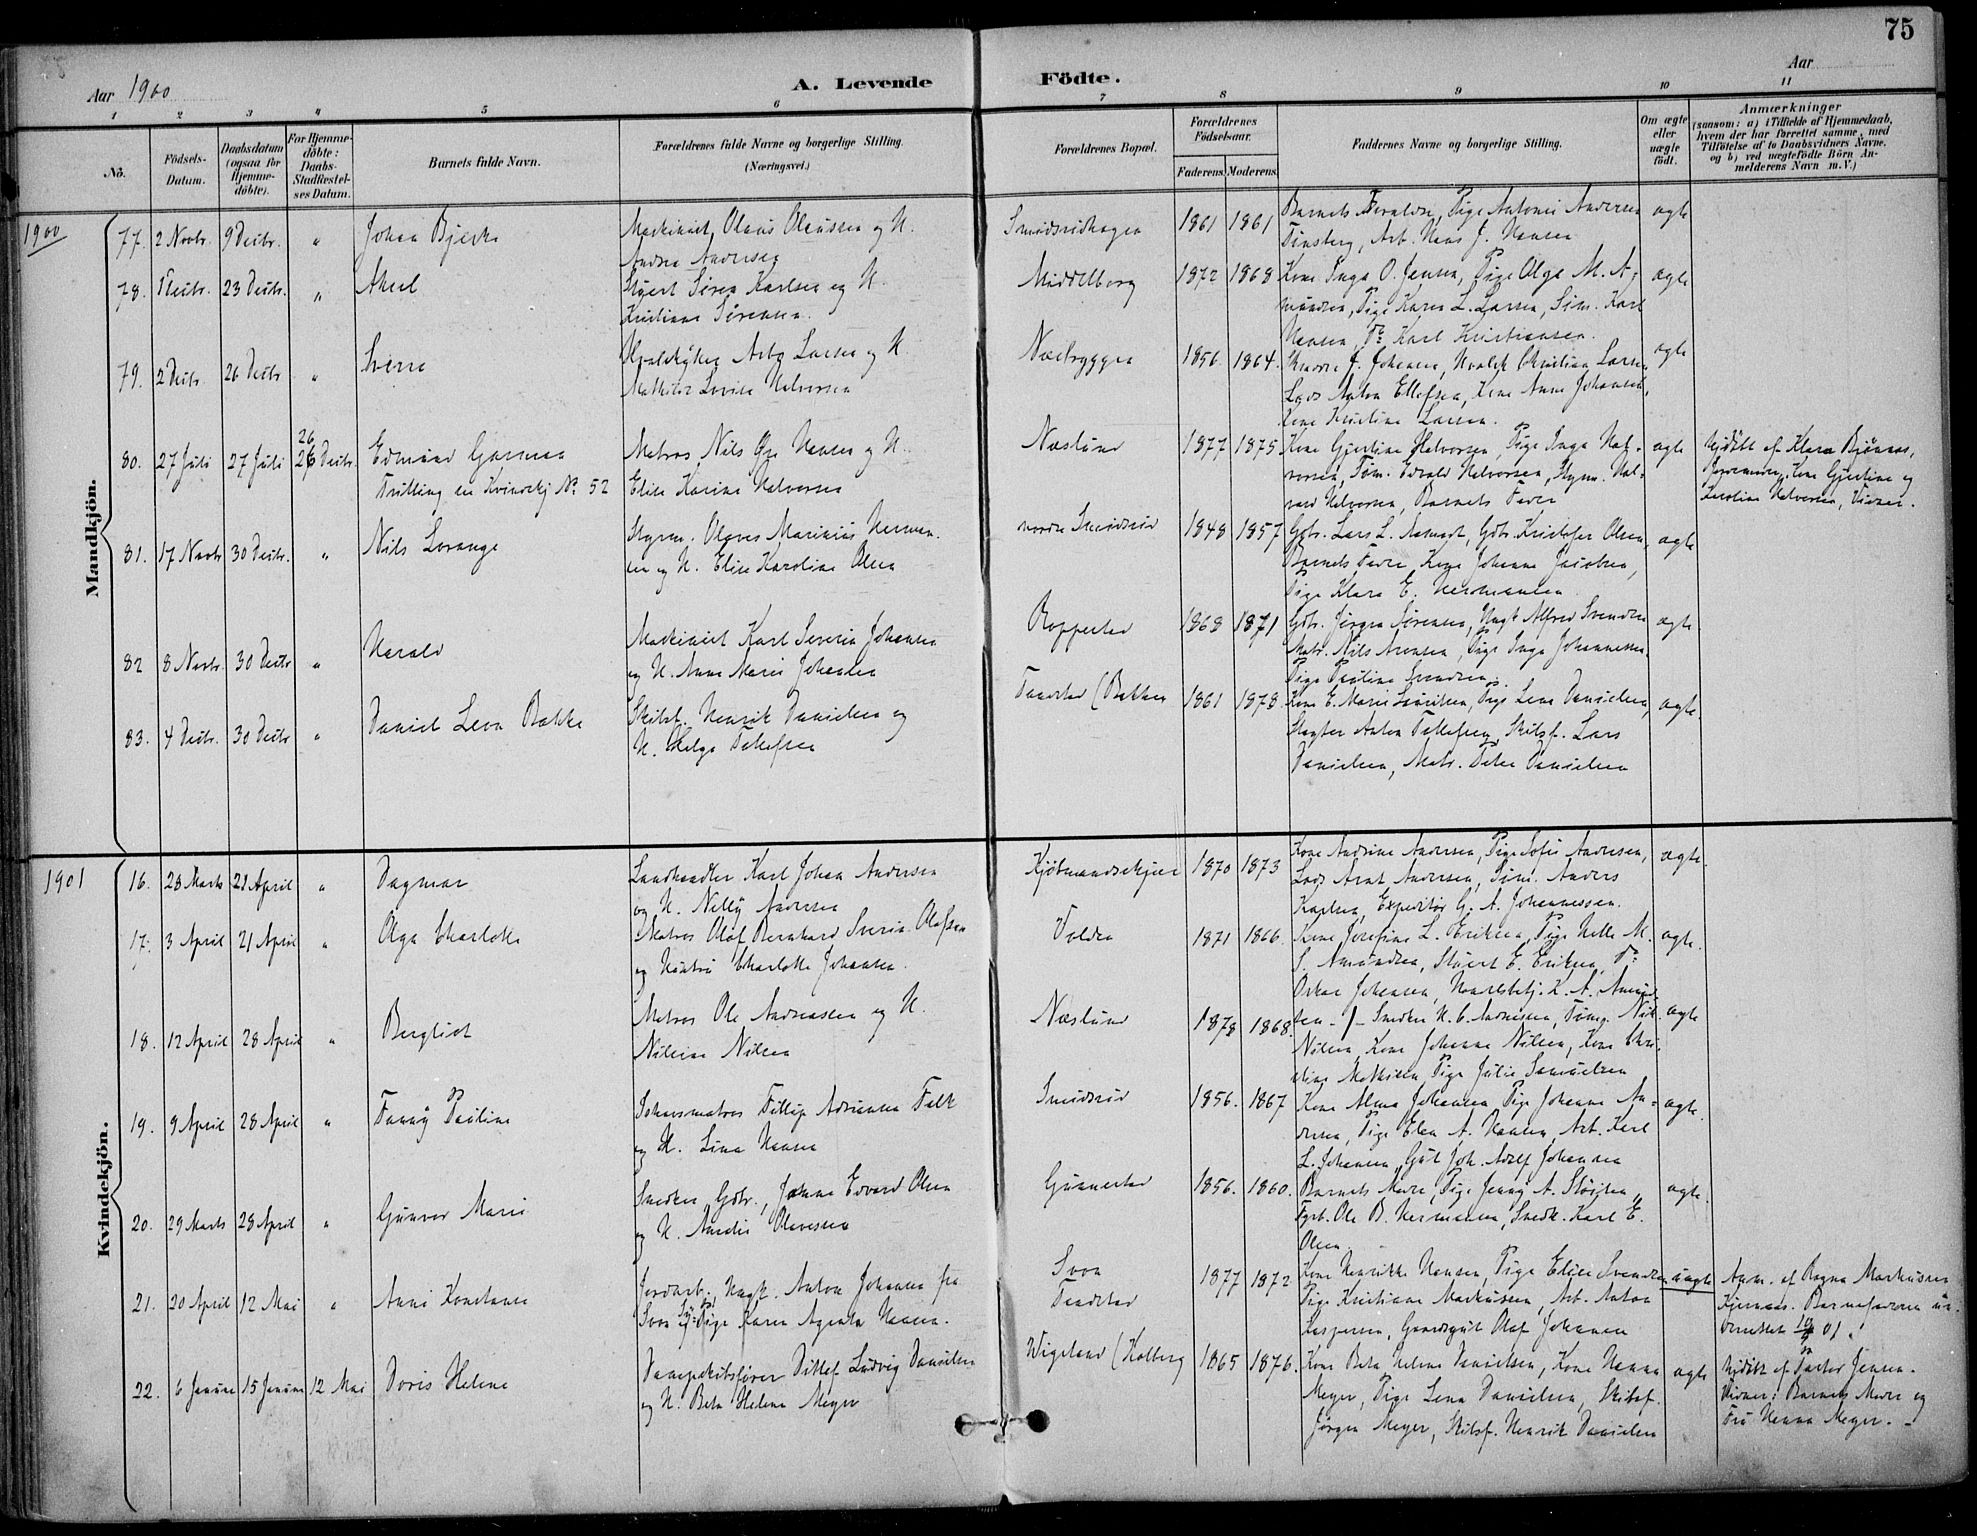 75
Aar 1900
A. Levende
Födte.
Aar
1 2 3 4 5 6 7 8 9 10 11
Nö.
Födsels-Datum.
Daabsdatum (ogsaa for Hjemme-döbte).
For Hjemme-döbte: Daabs-Stadfæstel-ses Datum.
Barnets fulde Navn.
Forældrenes fulde Navne og borgerlige Stilling. (Næringsvei.)
Forældrenes Bopæl.
Forældrenes Födselsaar.
Faderens. Moderens.
Faddernes Navne og borgerlige Stilling.
Om ægte eller uægte födt.
Anmærkninger
(saasom: a) i Tilfælde af Hjemmedaab, hvem der har forrettet samme, med Tilföielse af to Daabsvidners Navne, og b) ved uægtefödte Börn An-melderens Navn m.V.)
Mandkjön.
1900
77. 2 Novbr. 9 Decbr. " Johan Bjerke
Maskinist Olaus Olaussen og H.
Andrea Andersen
Smidsrødhagen 1861 1861
Barnets Forældre, Pige Antonie Andersen
Tønsberg, Arb. Hans J. Hansen
ægte
78. Decbr. 23 Decbr. " Aksel
Stuert Søren Karlsen og H.
Kristiane Sørensen.
Middelborg 1872 1868
Kone Inga O. Jensen, Pige Olga M. A-
mundsen, Pige Karen L. Larsen, Søm. Karl
Hansen, Do Karl Kristiansen.
ægte
79. 2 Decbr 26 Decbr " Sverre
Larsen og H.
Mathilde Lovise Halvorsen
Næsbryggen 1856 1864.
J. Johansen, Christian Larsen
Lods Anton Ellefsen, Kone Anne Johansen,
Kone Kristine Larsen.
ægte
80. 27 Juli 27 Juli 26 Decbr. Edmund Gorman
Trilling en Kvindekj. No. 52
Matros Nils Hansen og H.
Elise Karine Halvorsen
Næslund 1877 1875
Kone Gjertine Halvorsen, Pige Inga Hal-
vorsen, Tøm. Edvald Halvorsen, Styrm. Hal-
vard Halvorsen, Barnets Fader
ægte
Hjdøbt af Klara Bjønnes,
Jordemoder, Kone Gjertine og
Karoline Halvorsen, Vidner.
81. 17 Novbr 30 Decbr. " Nils Lorange
Styrm. Olaves Marinius Herman-
sen og H. Elise Karoline Olsen
nordre Smidsrød 1848 1857
Gbr. Lars L. Aasnødt, Gbr. Kristofer Olsen,
Barnets Fader, Kone Johanne Jacobsen,
Pige Klara E. Hermansen
ægte
82 8 Novbr. 30 Decbr " Harald
Maskinist Karl Severin Johansen
og H. Anne Marie Johansen
Ropperstad 1868 1871
Gbr. Jørgen Sørensen, Ungk. Alfred Svendsen
Matr. Nils Aronsen, Pige Inga Johannessen.
Pige Pauline Svendsen.
ægte
83. 4 Decbr. 30 Decbr " Daniel Leon Bakke
Skibsf. Henrik Danielsen og
H. Helga Tollefsen
Taanstad (Bakken 1861 1878
Kone E. Marie Lauritsen, Pige Lena Danielsen,
Slagter Anton Tollefsen, Skibsf. Lars
Danielsen, Matr. Peter Danielsen
ægte.
Kvindekjön.
1901
16. 28 Marts 21 April " Dagmar
Landhandler Karl Johan Andersen
og H. Nelly Andersen
Kjøbmandsskjær 1870 1873
Kone Andrine Andersen, Pige Sofie Andersen,
Lods Arnt Andersen, Tøm. Anders
Karlsen, Expeditør G. A. Johannessen.
ægte.
17. 3 April 21 April " Olga Charlotte
Matros Olaf Bernhard Severin Olafsen
og Hustru Charlotte Johansen.
Volden 1871 1866.
Kone Josefine L. Eriksen, Pige Helle M.
S. Amundsen, Stuert E. Eriksen, Do
Oskar Johansen, K. A. Amund-
sen
ægte.
18. 12 April 28 April " Bergliot
Matros Ole Andreassen og H.
Nilsine Nilsen
Næslund 1878 1868.
Smeden H. C. Andreasen, Tømm. Nils
Nilsen, Kone Johanne Nilsen, Kone Chri-
stine Mathisen, Pige Julie Samuelsen
ægte
19. 9 April 28 April " Fanny Pauline
Johansmatros Fillip Adriansen Falk
og H. Lina Hansen
Smidsrød 1856. 1867
Kone Alma Johansen Pige Johanne An-
dersen, Pige Elen A. Hansen, Arb. Karl
L. Johansen, Gut Joh. Adolf Johansen
ægte.
20. 29 Marts 28 April " Gunvor Marie
Snedker, Gbr., Johan Edvard Olsen
og H. Amalie Olavesen
Gunnestad 1856. 1860.
Barnets Moder, Pige Jenny A. Støiten,
Fyrb. Ole B. Hermansen, Snedk. Karl E.
Olsen.
ægte.
21. 20 April 12 Mai " Anni Konstance
Jordarb., Ungk. Anton Johansen fra
Svoa og Pige Karen Agathe Hansen.
Svoa
Taadstad
1877 1872
Kone Henrikke Hansen, Pige Elise Svendsen
Pige Kristiane Markussen, Arb. Anton
Kaspersen, Gaardsgut Olaf Johansen
uægte
Anm. af Ragna Markussen
Kjernaas. Barnefaderen un-
derrettet 01.
22. 6 Januar 15 Januar 12 Mai Doris Helene
Dampskibsfører Ditlef Ludvig Danielsen
og H. Beta Helene Meyer
Wigeland (Holberg 1865 1876.
Kone Beta Helene Danielsen, Kone Hanna
Meyer, Pige Lena Danielsen, Skibsf.
Jørgen Meyer, Skibsf. Henrik Danielsen
ægte
Hjdøbt af Pastor Jensen.
Vidner: Barnets Moder og
Fru Hanna Meyer.